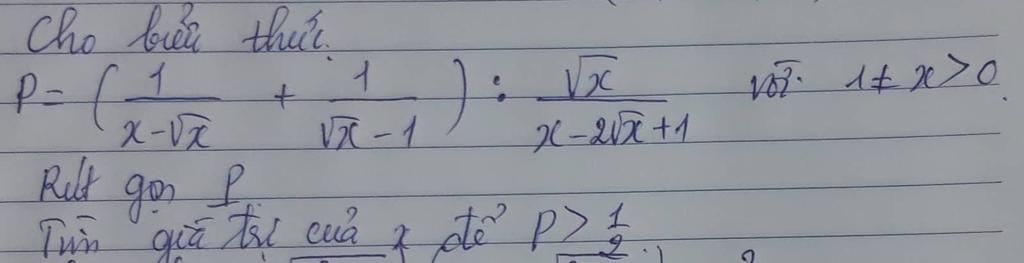 Cho biểu thức.
P = ( 1/(x-√x) + 1/(√x-1) ) : √x/(x-2√x+1) với 1 ≠ x > 0.
Rút gọn P
Tìm giá trị của x để P > 1/2